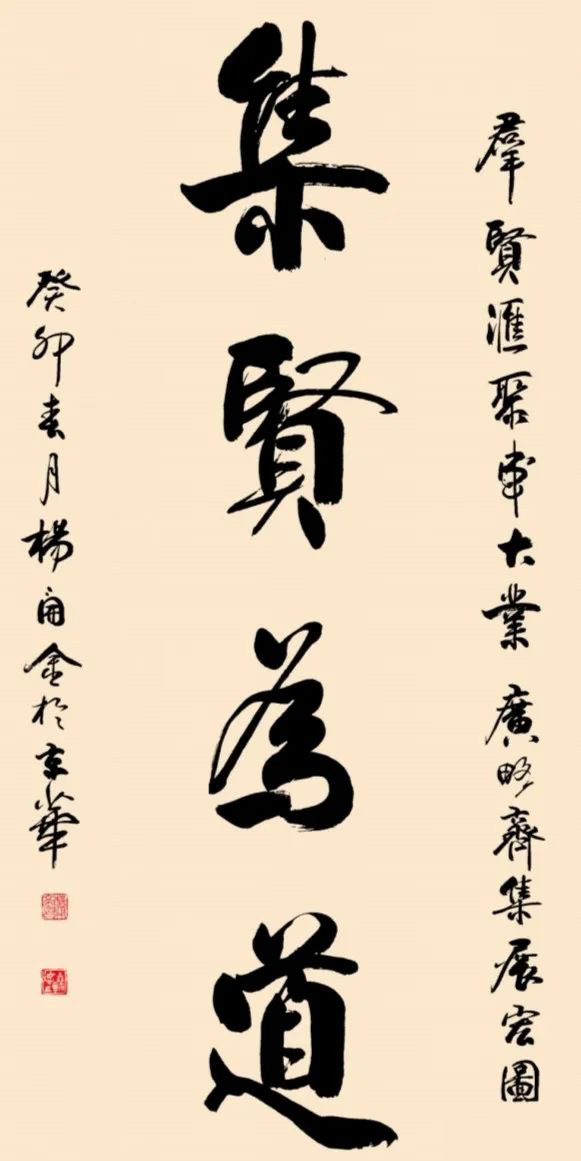 羣賢滙聚成大業 廣略齊集展宏圖
集賢為道
癸卯春月楊開金於京華